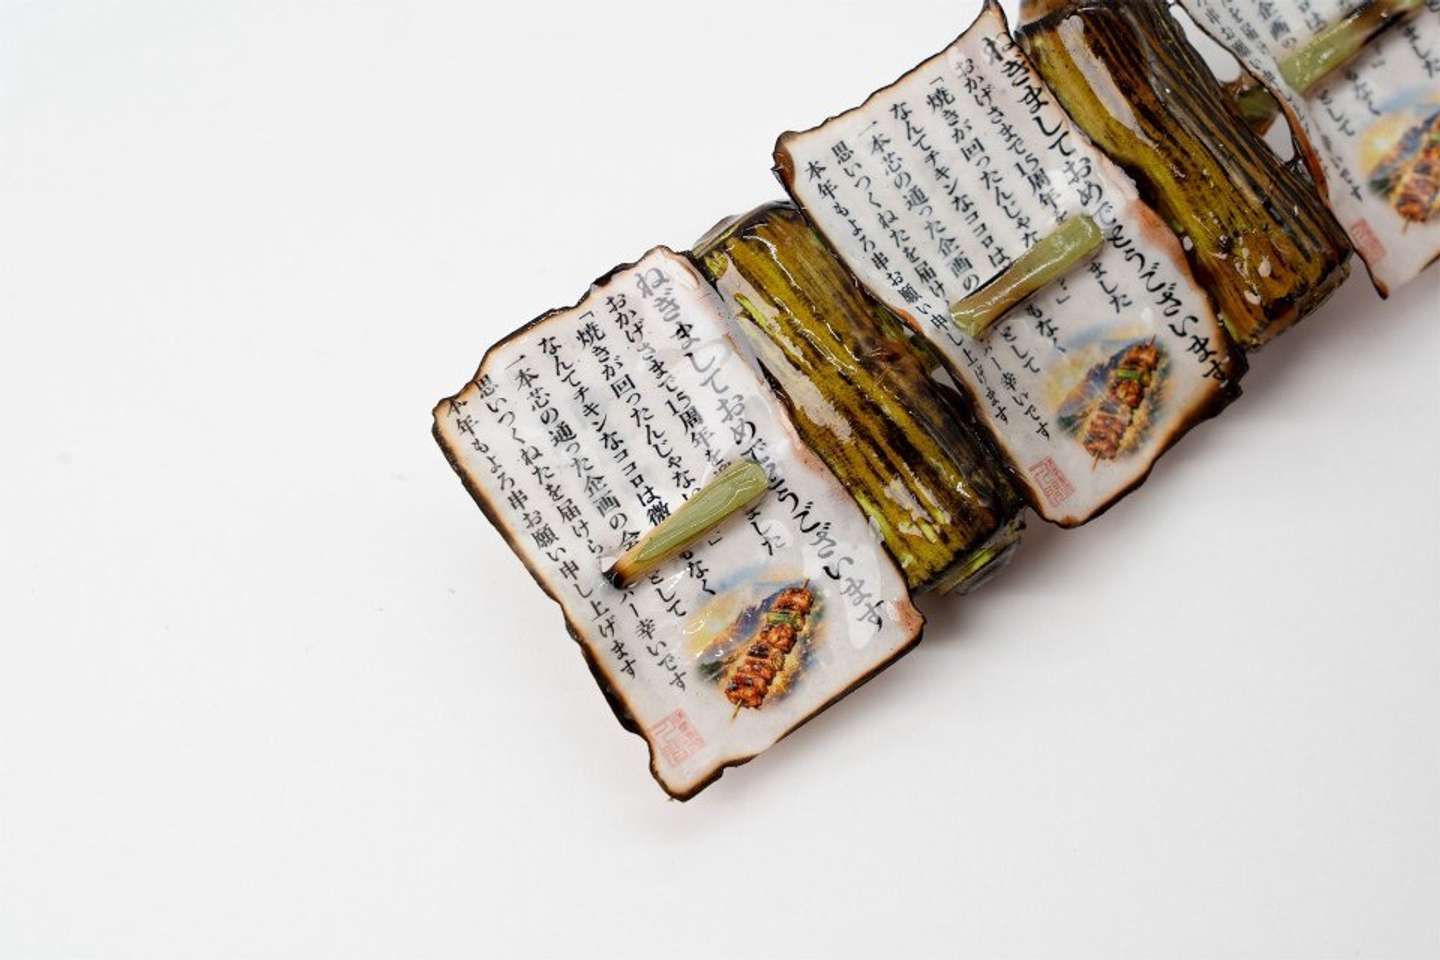 ねぎましておめでとうございます
おかげさまで15周年を ました
「焼きが回ったんじゃない 」
なんてチキンなココロは微 もなく
一本芯の通った企画の会 として
思いつくねたを届けら バー幸いです
本年もよろ串お願い申し上げます
ねぎましておめでとうございます
おかげさまで15周年を ました
「焼きが回ったんじゃな 」
なんてチキンなココロは もなく
一本芯の通った企画の として
思いつくねたを届け バー幸いです
本年もよろ串お願い申し上げます
ました
もなく
企画の として